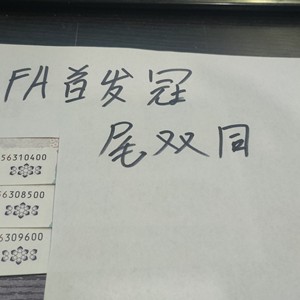 FA首发冠
尾双同
56310400
56308500
6309600